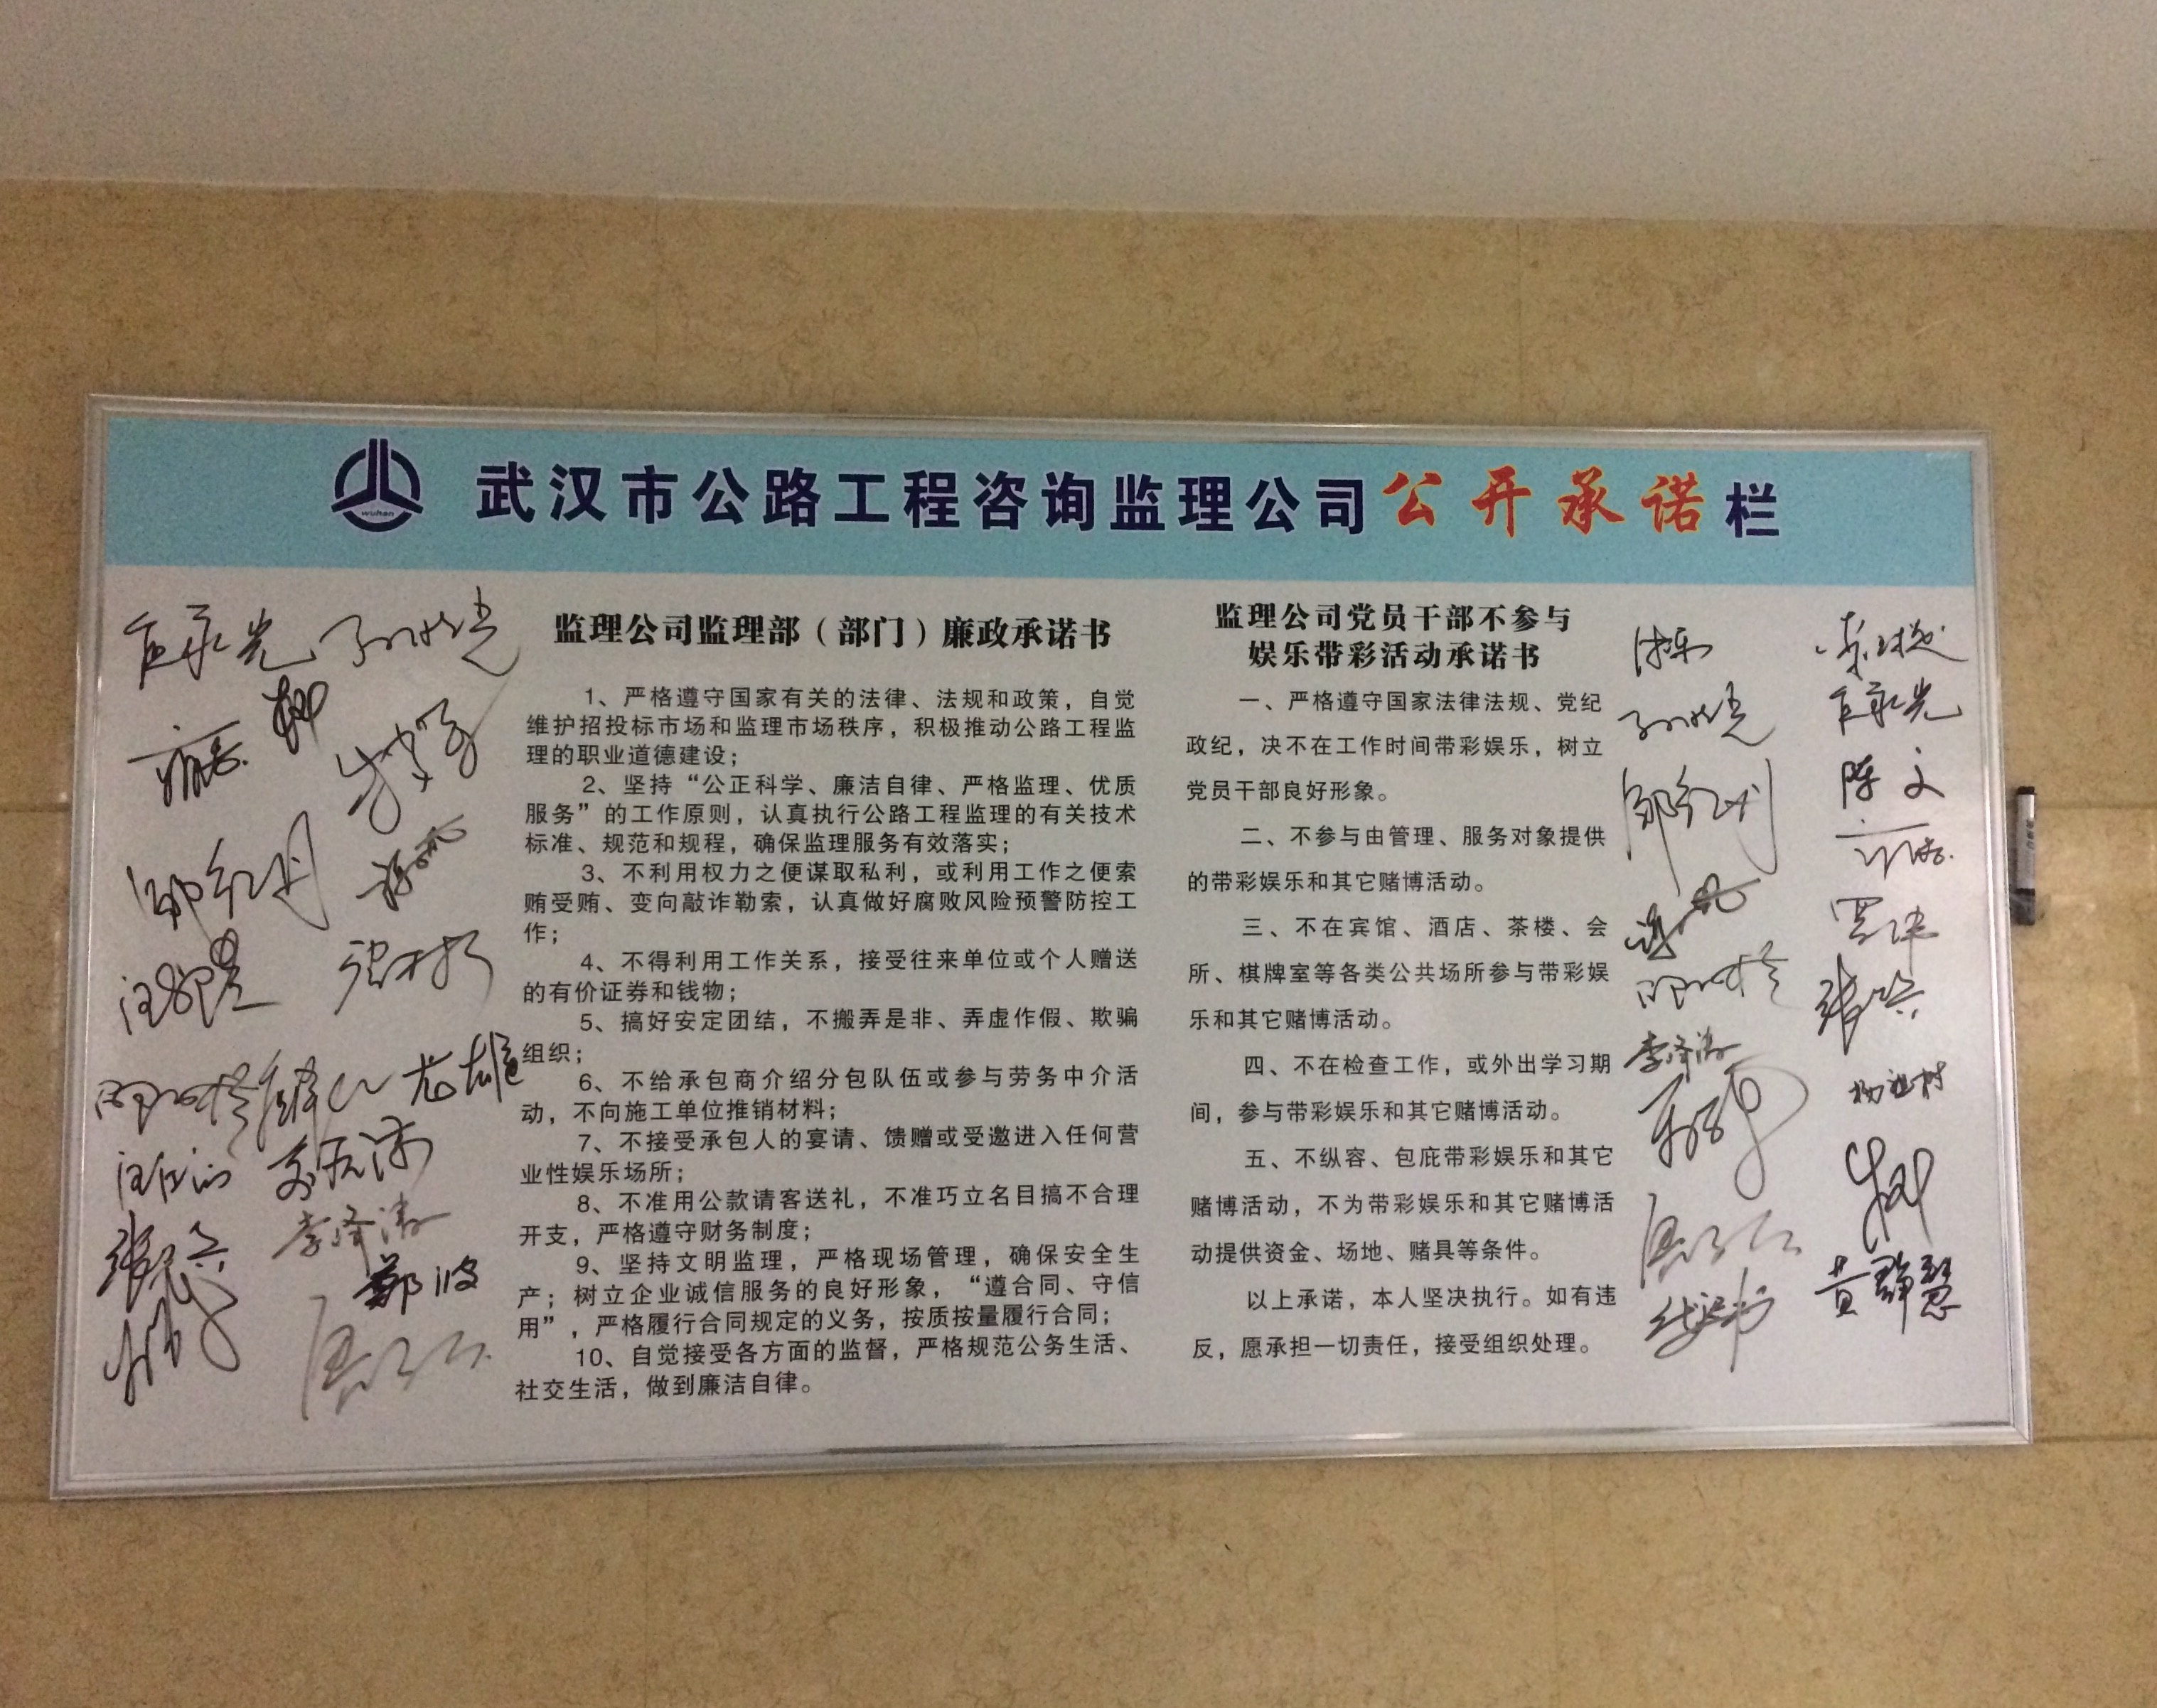 武汉市公路工程咨询监理公司公开承诺栏
wuhan
监理公司监理部（部门）廉政承诺书
1、严格遵守国家有关的法律、法规和政策，自觉
维护招投标市场和监理市场秩序，积极推动公路工程监
理的职业道德建设；
2、坚持“公正科学、廉洁自律、严格监理、优质
服务”的工作原则，认真执行公路工程监理的有关技术
标准、规范和规程，确保监理服务有效落实；
3、不利用权力之便谋取私利，或利用工作之便索
贿受贿、变向敲诈勒索，认真做好腐败风险预警防控工
作；
4、不得利用工作关系，接受往来单位或个人赠送
的有价证券和钱物；
5、搞好安定团结，不搬弄是非、弄虚作假、欺骗
组织；
6、不给承包商介绍分包队伍或参与劳务中介活
动，不向施工单位推销材料；
7、不接受承包人的宴请、馈赠或受邀进入任何营
业性娱乐场所；
8、不准用公款请客送礼，不准巧立名目搞不合理
开支，严格遵守财务制度；
9、坚持文明监理，严格现场管理，确保安全生
产；树立企业诚信服务的良好形象，“遵合同、守信
用”，严格履行合同规定的义务，按质按量履行合同；
10、自觉接受各方面的监督，严格规范公务生活、
社交生活，做到廉洁自律。
监理公司党员干部不参与
娱乐带彩活动承诺书
一、严格遵守国家法律法规、党纪
政纪，决不在工作时间带彩娱乐，树立
党员干部良好形象。
二、不参与由管理、服务对象提供
的带彩娱乐和其它赌博活动。
三、不在宾馆、酒店、茶楼、会
所、棋牌室等各类公共场所参与带彩娱
乐和其它赌博活动。
四、不在检查工作，或外出学习期
间，参与带彩娱乐和其它赌博活动。
五、不纵容、包庇带彩娱乐和其它
赌博活动，不为带彩娱乐和其它赌博活
动提供资金、场地、赌具等条件。
以上承诺，本人坚决执行。如有违
反，愿承担一切责任，接受组织处理。
郑波
陈文
黄静慧